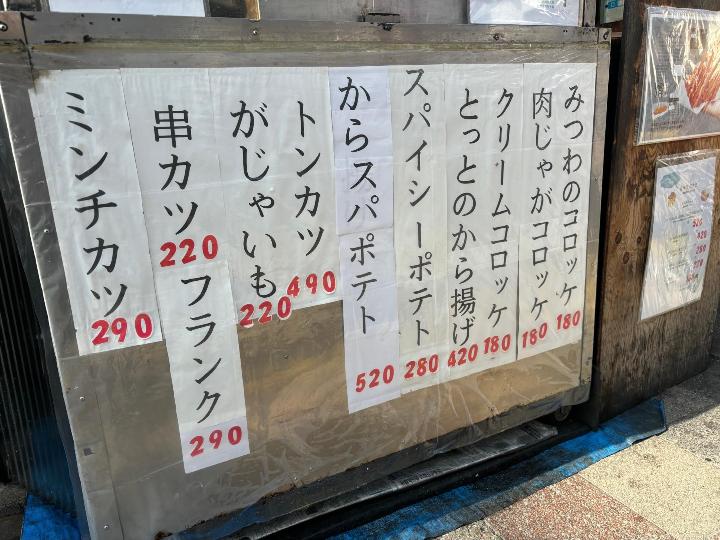 みつわのコロッケ 180
肉じゃがコロッケ 180
クリームコロッケ 180
とっとのから揚げ 420
スパイシーポテト 280
からスパポテト 520
トンカツ 490
がじゃいも 220
串カツ 220
フランク 290
ミンチカツ 290
520
420
280
220